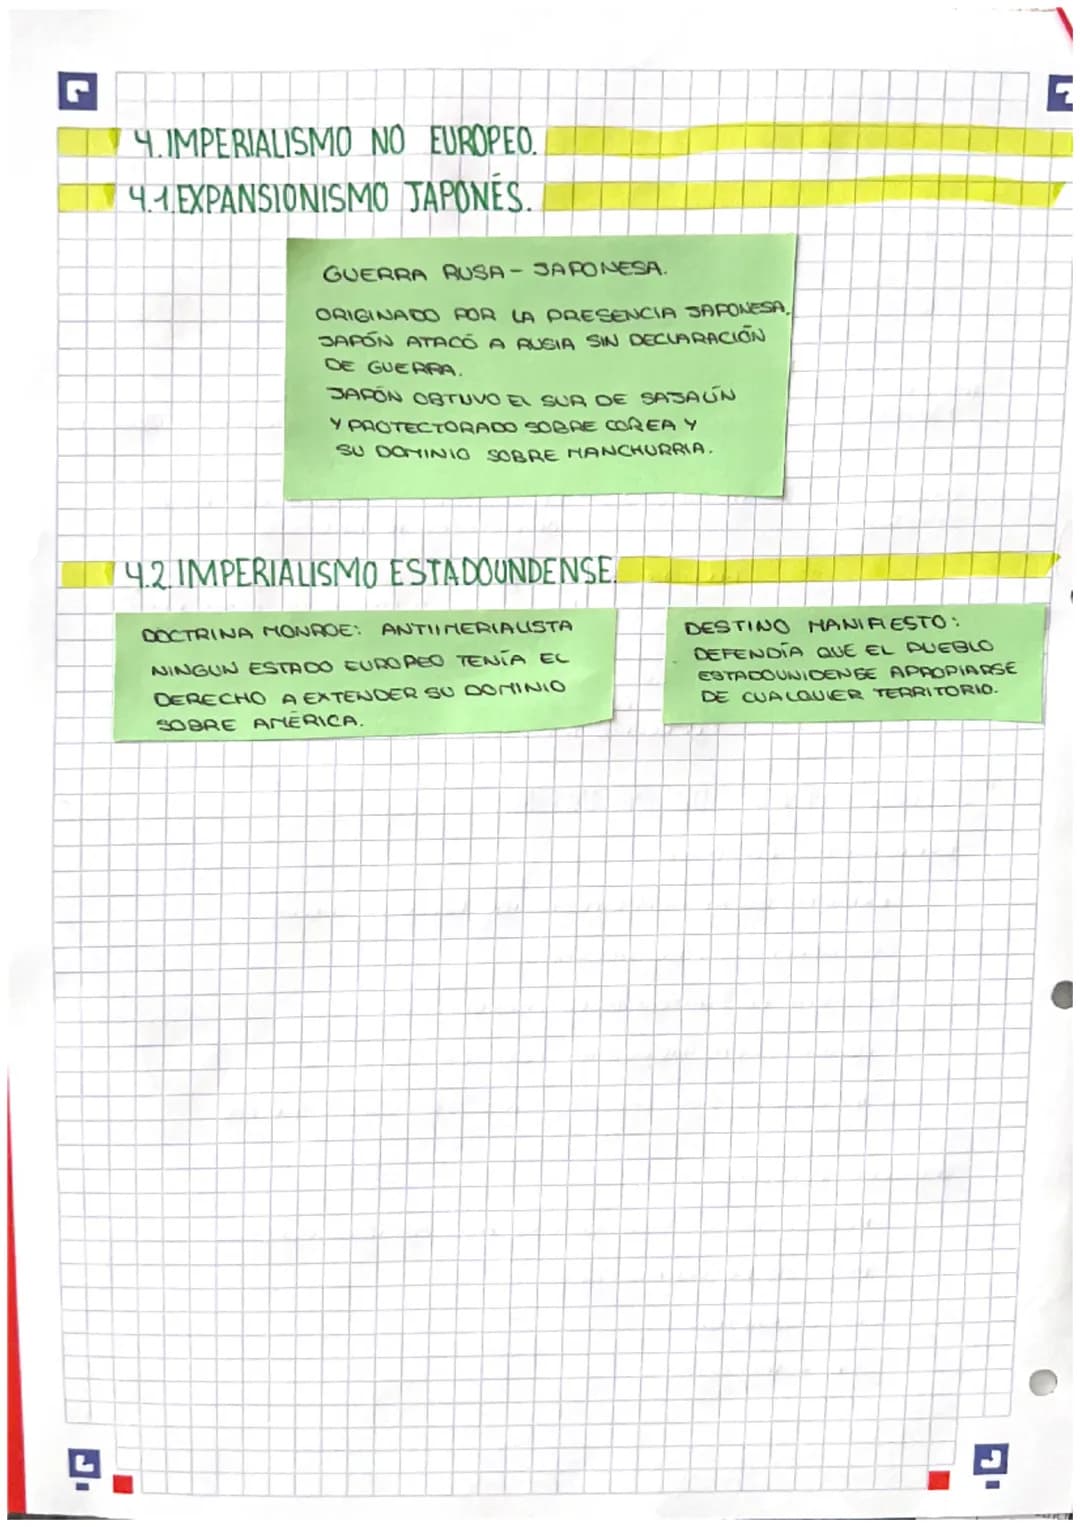 4.IMPERIALISMO NO EUROPEO.
4.1.EXPANSIONISMO JAPONÉS.
GUERRA RUSA - JAPONESA.
ORIGINADO POR LA PRESENCIA JAPONESA.
JAPÓN ATACÓ A RUSIA SIN DECLARACIÓN
DE GUERRA.
JAPÓN OBTUVO EL SUR DE SAJALÍN
Y PROTECTORADO SOBRE COREA Y
SU DOMINIO SOBRE MANCHURRIA.
4.2.IMPERIALISMO ESTADOUNDENSE.
DOCTRINA MONROE: ANTIIMERIALISTA
NINGUN ESTADO EUROPEO TENÍA EL
DERECHO A EXTENDER SU DOMINIO
SOBRE AMÉRICA.
DESTINO MANIFIESTO:
DEFENDÍA QUE EL PUEBLO
ESTADOUNIDENSE APROPIARSE
DE CUALQUIER TERRITORIO.